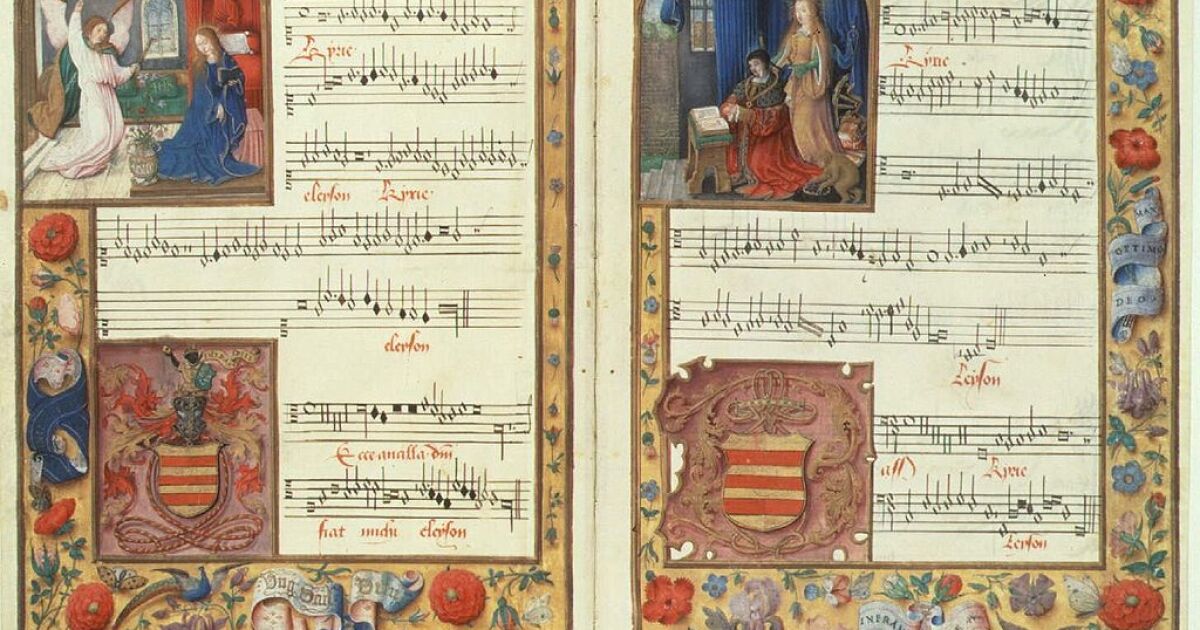 Kyrie
eleyson Kyrie
eleyson
Ecce ancilla dni
fiat michi eleyson
Kyrie
MAX
OPTIMO
DEO
Leyson
Kyrie
Leyson